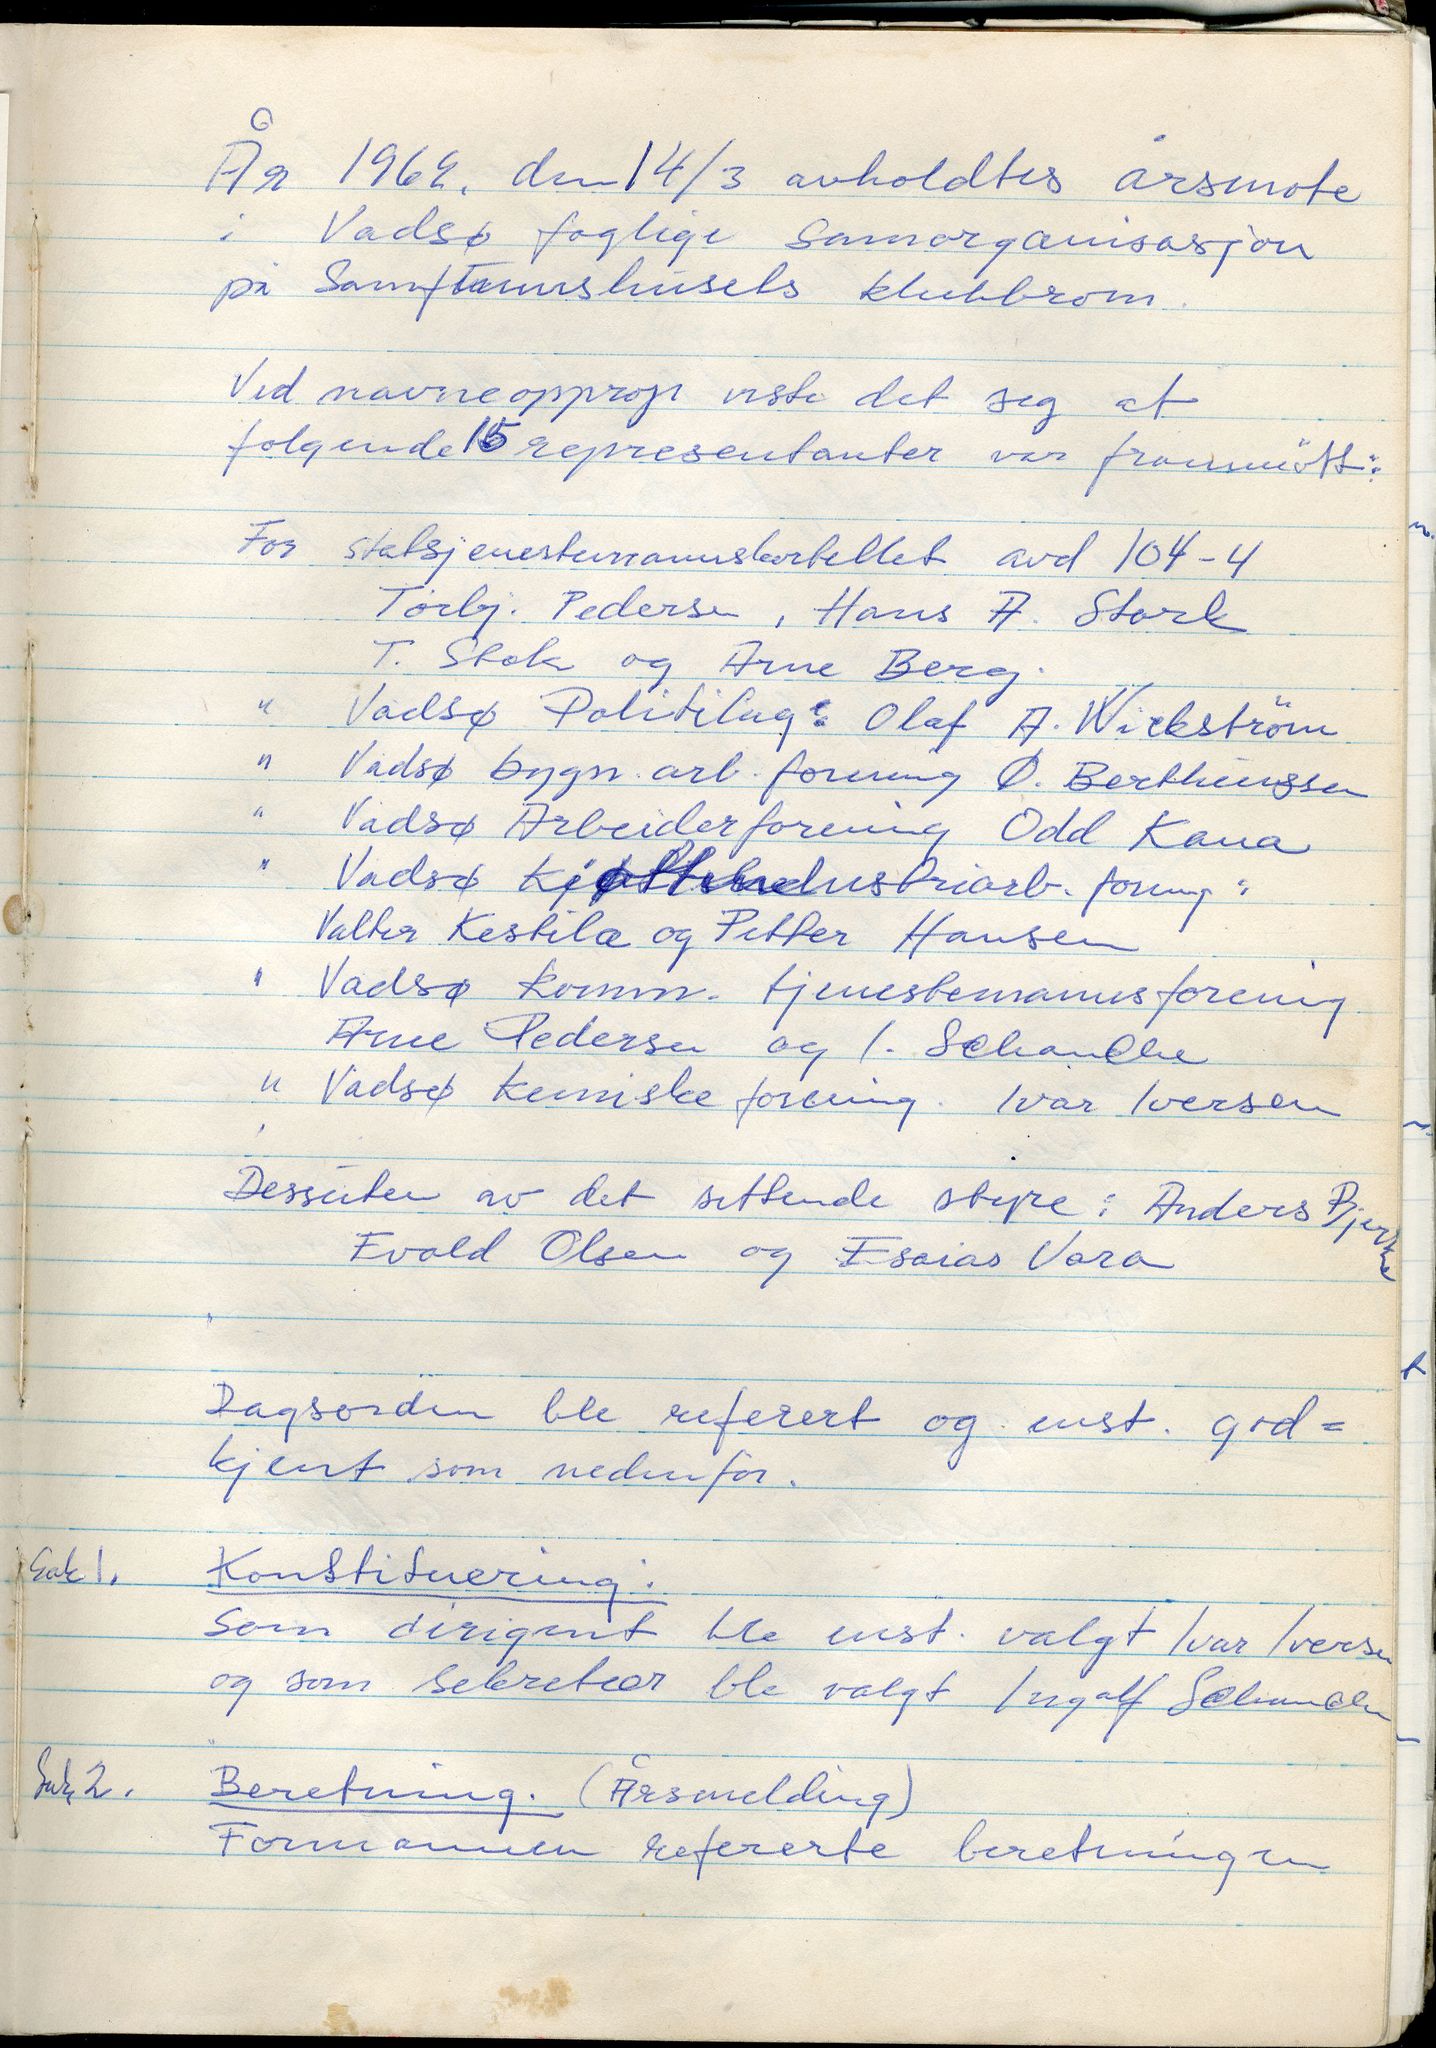 År 1962. den 14/3 avholdtes årsmøte
i Vadsø faglige Samorganisasjon
på Samfunnshusets klubbrom.
Ved navneopprop viste det seg at
følgende 15 representanter var frammøtt:
For statstjenestemannskartellet avd 104-4
Torbj. Pedersen, Hans A. Stork
T. Stok og Arne Berg.
" Vadsø Politilag: Olaf A. Wickström
" Vadsø bygn. arb. forening Ø. Berthinussen
" Vadsø Arbeiderforening Odd Kana
" Vadsø Kjøttindustriarb. foreng:
Valter Kestilæ og Petter Hansen
" Vadsø komm. tjenestemannsforening
Arne Pedersen og I. Schanche
" Vadsø kemiske forening. Ivar Iversen
Dessuten av det sittende styre: Anders Bjerkne
Evald Olsen og Esaias Vara
Dagsorden ble referert og enst. god=
kjent som nedenfor.
Sak 1. Konstituering.
Som dirigent ble enst. valgt Ivar Iversen
og som sekretær ble valgt Ingolf Schanche
Sak 2. Beretning. (Årsmelding)
Formannen refererte beretningen